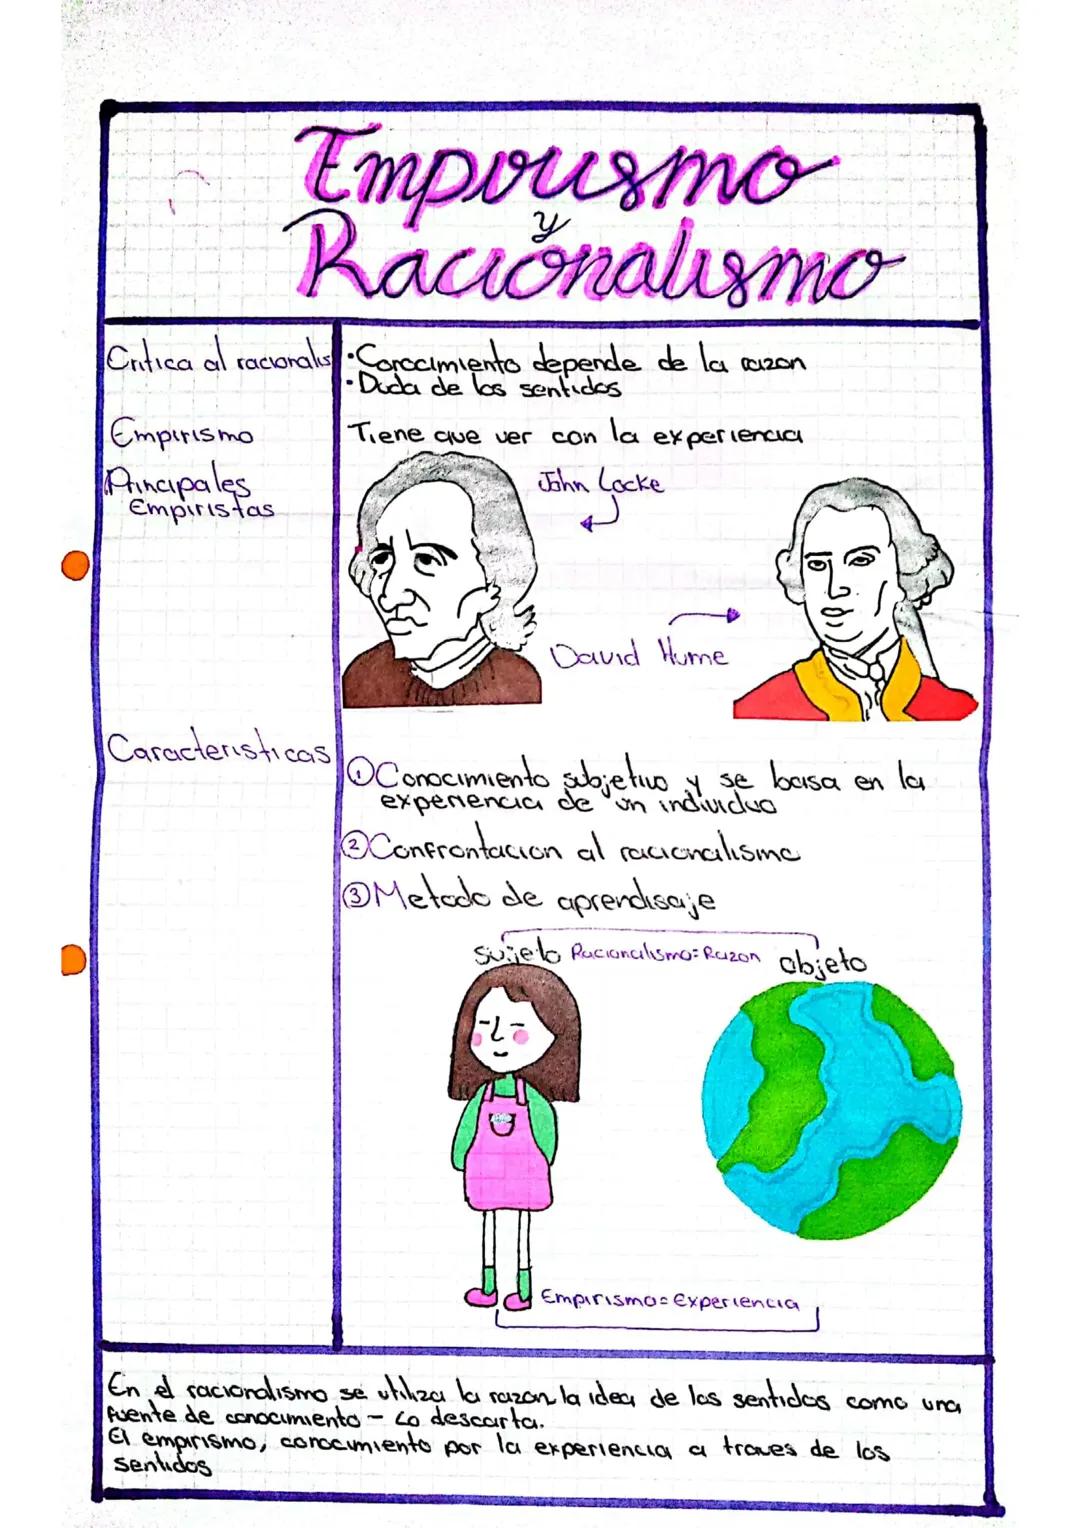 Empirismo
y
Racionalismo
Critica al racionalis
·Conocimiento depende de la razon
·Duda de los sentidos
Empirismo
Tiene que ver con la experiencia
Principales
Empiristas
John Locke
David Hume
Caracteristicas
①Conocimiento subjetivo y se basa en la
experiencia de un individuo
②Confrontacion al racionalismo
③Metodo de aprendisaje
sujeto Racionalismo=Razon objeto
Empirismo=Experiencia
En el racionalismo se utiliza la razon la idea de los sentidos como una
fuente de conocimiento - Lo descarta.
El empirismo, conocimiento por la experiencia a traves de los
sentidos